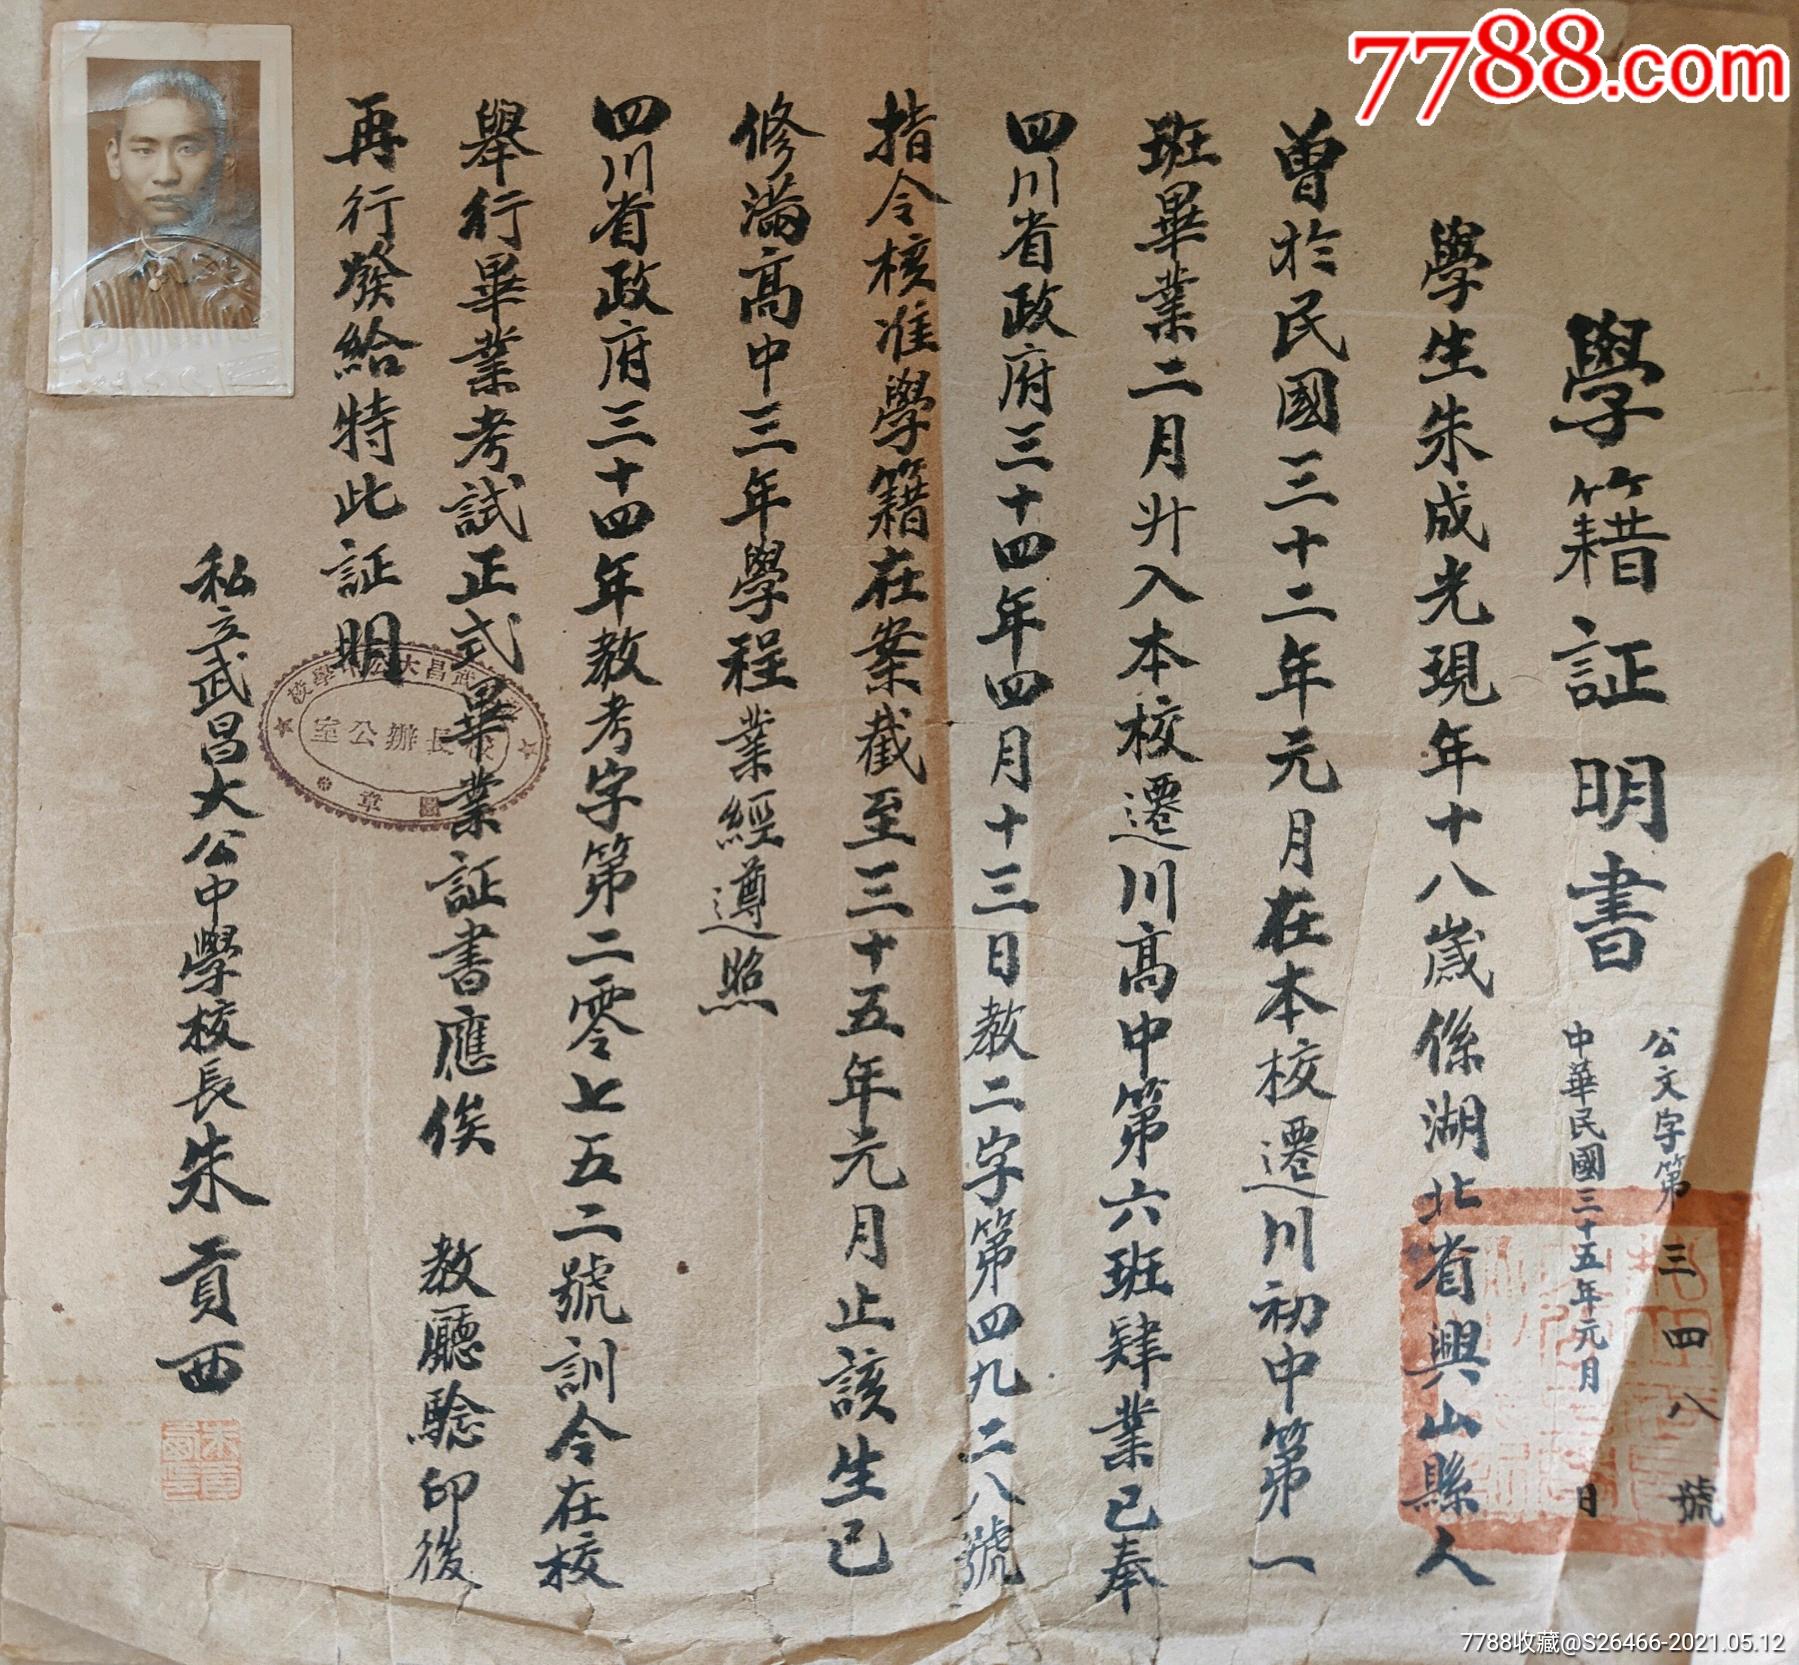 7788.com
學籍証明書
公文字第三四八號
中華民國三十五年元月 日
學生朱成光現年十八歲係湖北省興山縣人
曾於民國三十二年元月在本校遷川初中第一
班畢業二月升入本校遷川高中第六班肄業已奉
四川省政府三十四年四月十三日教二字第四九二八號
指令核准學籍在案截至三十五年元月止該生已
修滿高中三年學程業經遵照
四川省政府三十四年教考字第二零七五二號訓令在校
舉行畢業考試正式畢業証書應俟 教廳驗印後
再行發給特此証明
私立武昌大公中學校長朱貢西
武昌大公中學校
長辦公室
圖章
7788收藏@S26466-2021.05.12